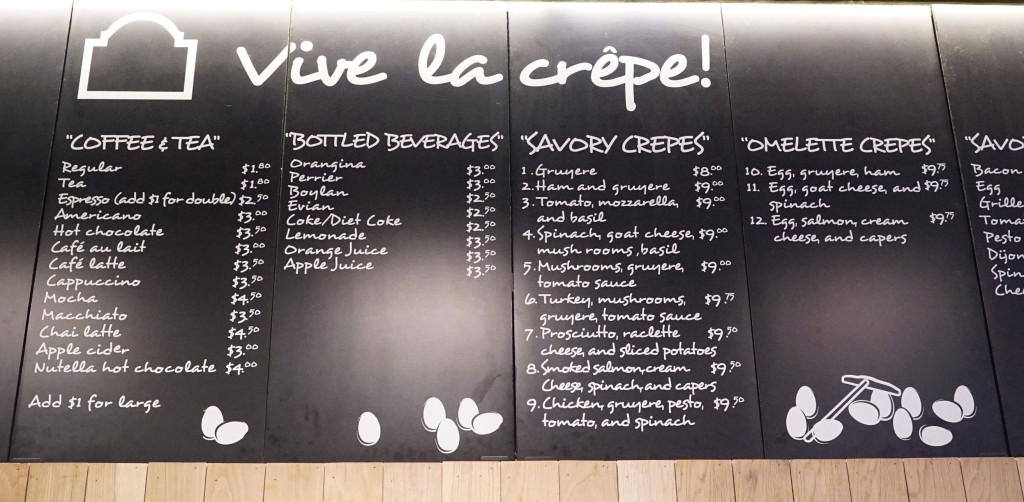 Vive la crêpe!
"COFFEE & TEA"
Regular $1.80
Tea $1.80
Espresso (add $1 for double) $2.50
Americano $3.00
Hot chocolate $3.50
Café au lait $3.00
Café latte $3.50
Cappuccino $3.50
Mocha $4.50
Macchiato $3.50
Chai latte $4.50
Apple cider $3.00
Nutella hot chocolate $4.00
Add $1 for large
"BOTTLED BEVERAGES"
Orangina $3.00
Perrier $3.00
Boylan $2.50
Evian $2.50
Coke/Diet Coke $2.50
Lemonade $3.50
Orange Juice $3.50
Apple Juice $3.50
"SAVORY CREPES"
1. Gruyere $8.00
2. Ham and gruyere $9.00
3. Tomato, mozzarella, $9.00
and basil
4. Spinach, goat cheese, $9.00
mush rooms, basil
5. Mushrooms, gruyere, $9.00
tomato sauce
6. Turkey, mushrooms, $9.75
gruyere, tomato sauce
7. Prosciutto, raclette $9.50
cheese, and sliced potatoes
8. Smoked salmon, cream $9.50
Cheese, spinach, and capers
9. Chicken, gruyere, pesto, $9.50
tomato, and spinach
"OMELETTE CREPES"
10. Egg, gruyere, ham $9.75
11. Egg, goat cheese, and $9.75
spinach
12. Egg, salmon, cream $9.75
cheese, and capers
"SAVO
Bacon
Egg
Grille
Toma
Pesto
Dijon
Spin
Che